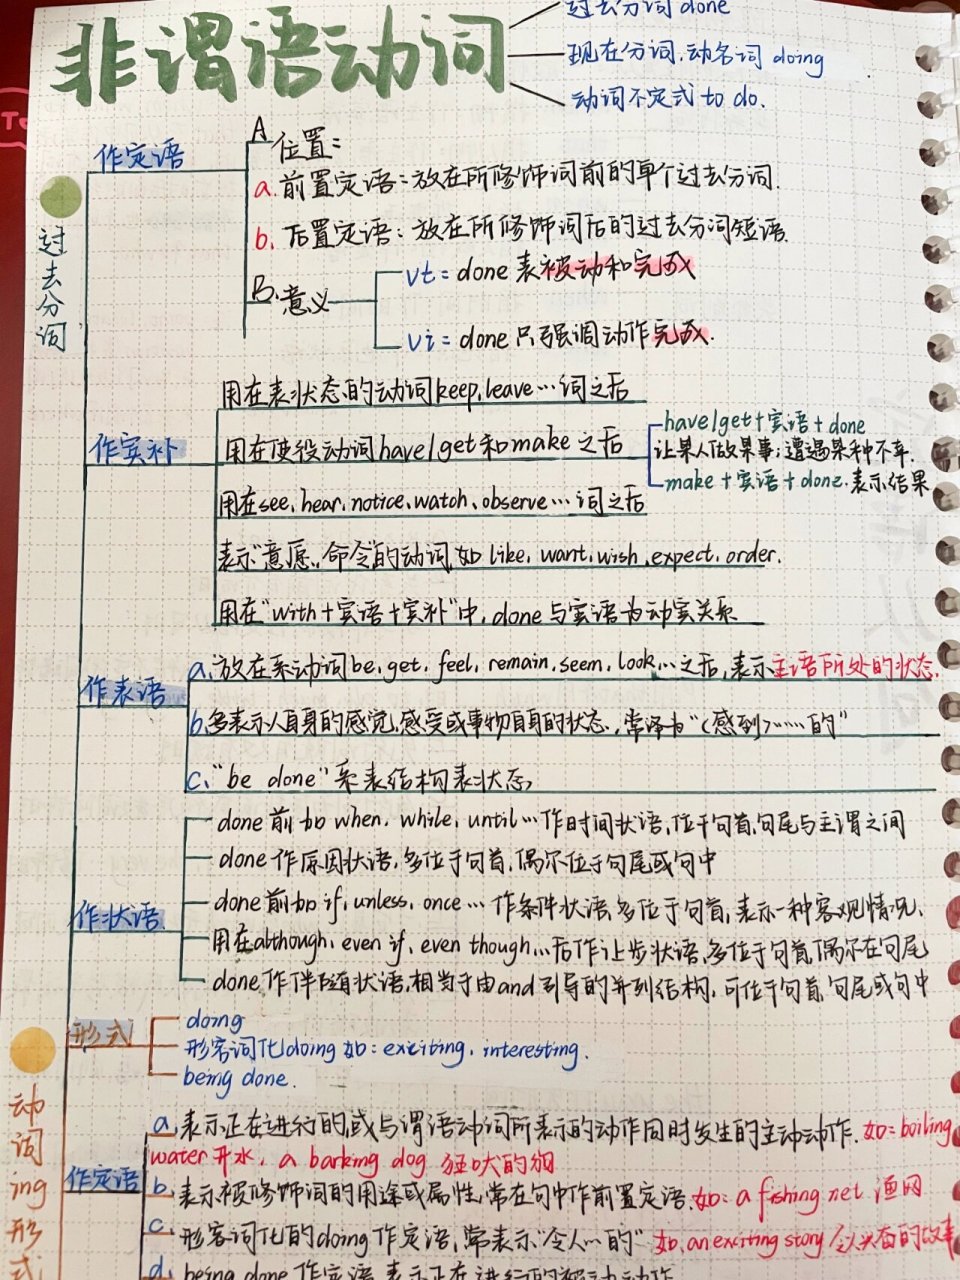 非谓语动词
过去分词 done
现在分词.动名词 doing
动词不定式 to do.
过去分词
作定语
A 位置:
a. 前置定语:放在所修饰词前的单个过去分词.
b. 后置定语:放在所修饰词后的过去分词短语.
B. 意义
vt: done 表被动和完成
vi: done 只强调动作完成.
作宾补
用在表状态的动词keep,leave…词之后
用在使役动词have/get和make之后
have/get+宾语+done
让某人做某事;遭遇某种不幸.
make+宾语+done.表示结果
用在see,hear,notice,watch,observe…词之后
表示"意愿,命令"的动词,如 like, want,wish,expect,order.
用在"with+宾语+宾补"中,done与宾语为动宾关系
作表语
a.放在系动词be,get,feel,remain,seem,look,…之后,表示主语所处的状态.
b.多表示人自身的感觉,感受或事物自身的状态,常译为"(感到)……的"
c."be done"系表结构表状态
作状语
done前加when, while, until…作时间状语,位于句首,句尾与主谓之间
done作原因状语,多位于句首,偶尔位于句尾或句中
done前加if,unless,once…作条件状语,多位于句首,表示一种客观情况.
用在although,even if,even though…后作让步状语,多位于句首,偶尔在句尾
done作伴随状语,相当于由and引导的并列结构,可位于句首,句尾或句中
动词ing形式
形式
doing
形容词化doing如:exciting, interesting.
being done.
作定语
a.表示正在进行的,或与谓语动词所表示的动作同时发生的主动动作.如:boiling
water开水, a barking dog 狂吠的狗
b.表示被修饰词的用途或属性,常在句中作前置定语.如:a fishing net 渔网
c.形容词化的doing作定语,常表示"令人…的" 如,an exciting story 令人兴奋的故事
d.being done作定语,表示正在进行的被动动作